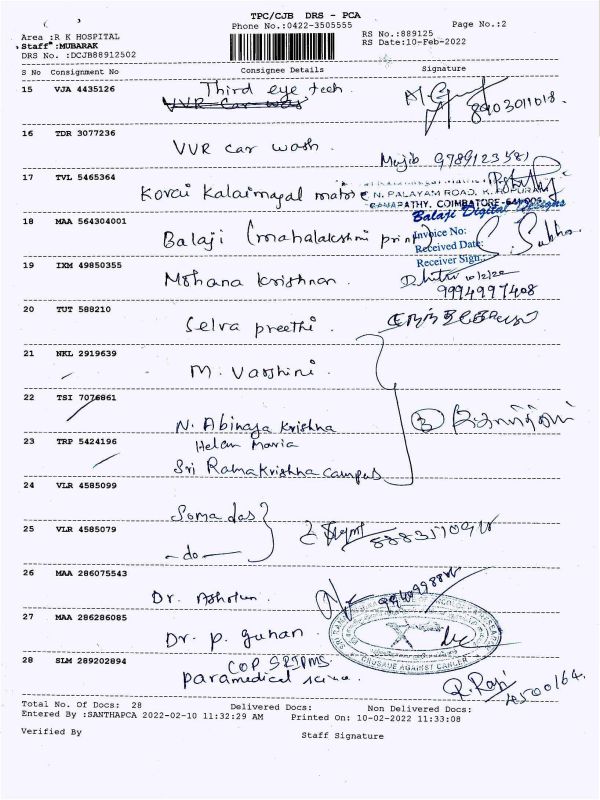 TPC/CJB DRS - PCA
Phone No.:0422-3505555
Page No.:2
Area :R K HOSPITAL
RS No.:889125
Staff :MUBARAK
RS Date:10-Feb-2022
DRS No. :DCJB88912502
S No Consignment No Consignee Details Signature
15 VJA 4435126 Third eye tech.
VVR car was
8903011018.
16 TDR 3077236
VVR car wash.
Mujib
17 TVL 5465364
Kovai Kalaimagal motors
N. PALAYAM ROAD, K.
GANAPATHY, COIMBATORE-641006
18 MAA 564304001
Balaji Digital Designs
Balaji (mahalakshmi print)
Invoice No:
Received Date:
Receiver Sign:
S. Subha
19 IXM 49850355
Mohana krishnan
10/2/22
9994997408
20 TUT 588210
Selva preethi.
21 NKL 2919639
M. Varshini.
22 TSI 7076861
N. Abinaya Krishna
23 TRP 5424196
Helan Maria
Sri Ramakrishna campus
24 VLR 4585099
Soma das
25 VLR 4585079
- do -
26 MAA 286075543
Dr.
27 MAA 286286085
Dr. P. Guhan
CRUSADE AGAINST CANCER
28 SLM 289202894
COP SRIPMS
paramedical
Total No. Of Docs: 28 Delivered Docs: Non Delivered Docs:
Entered By :SANTHAPCA 2022-02-10 11:32:29 AM Printed On: 10-02-2022 11:33:08
Verified By Staff Signature